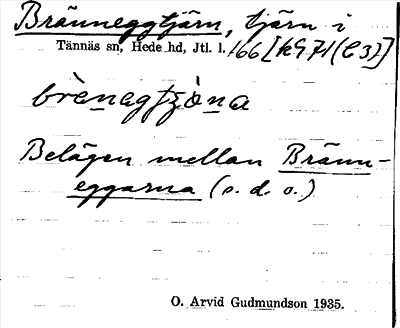 Bränneggtjärn, tjärn i
Tännäs sn, Hede hd, Jtl. l. 166 [k971(C3)]
brènegtʒὰna
Belägen mellan Bränn-
eggarna (s. d. o.)
O. Arvid Gudmundson 1935.